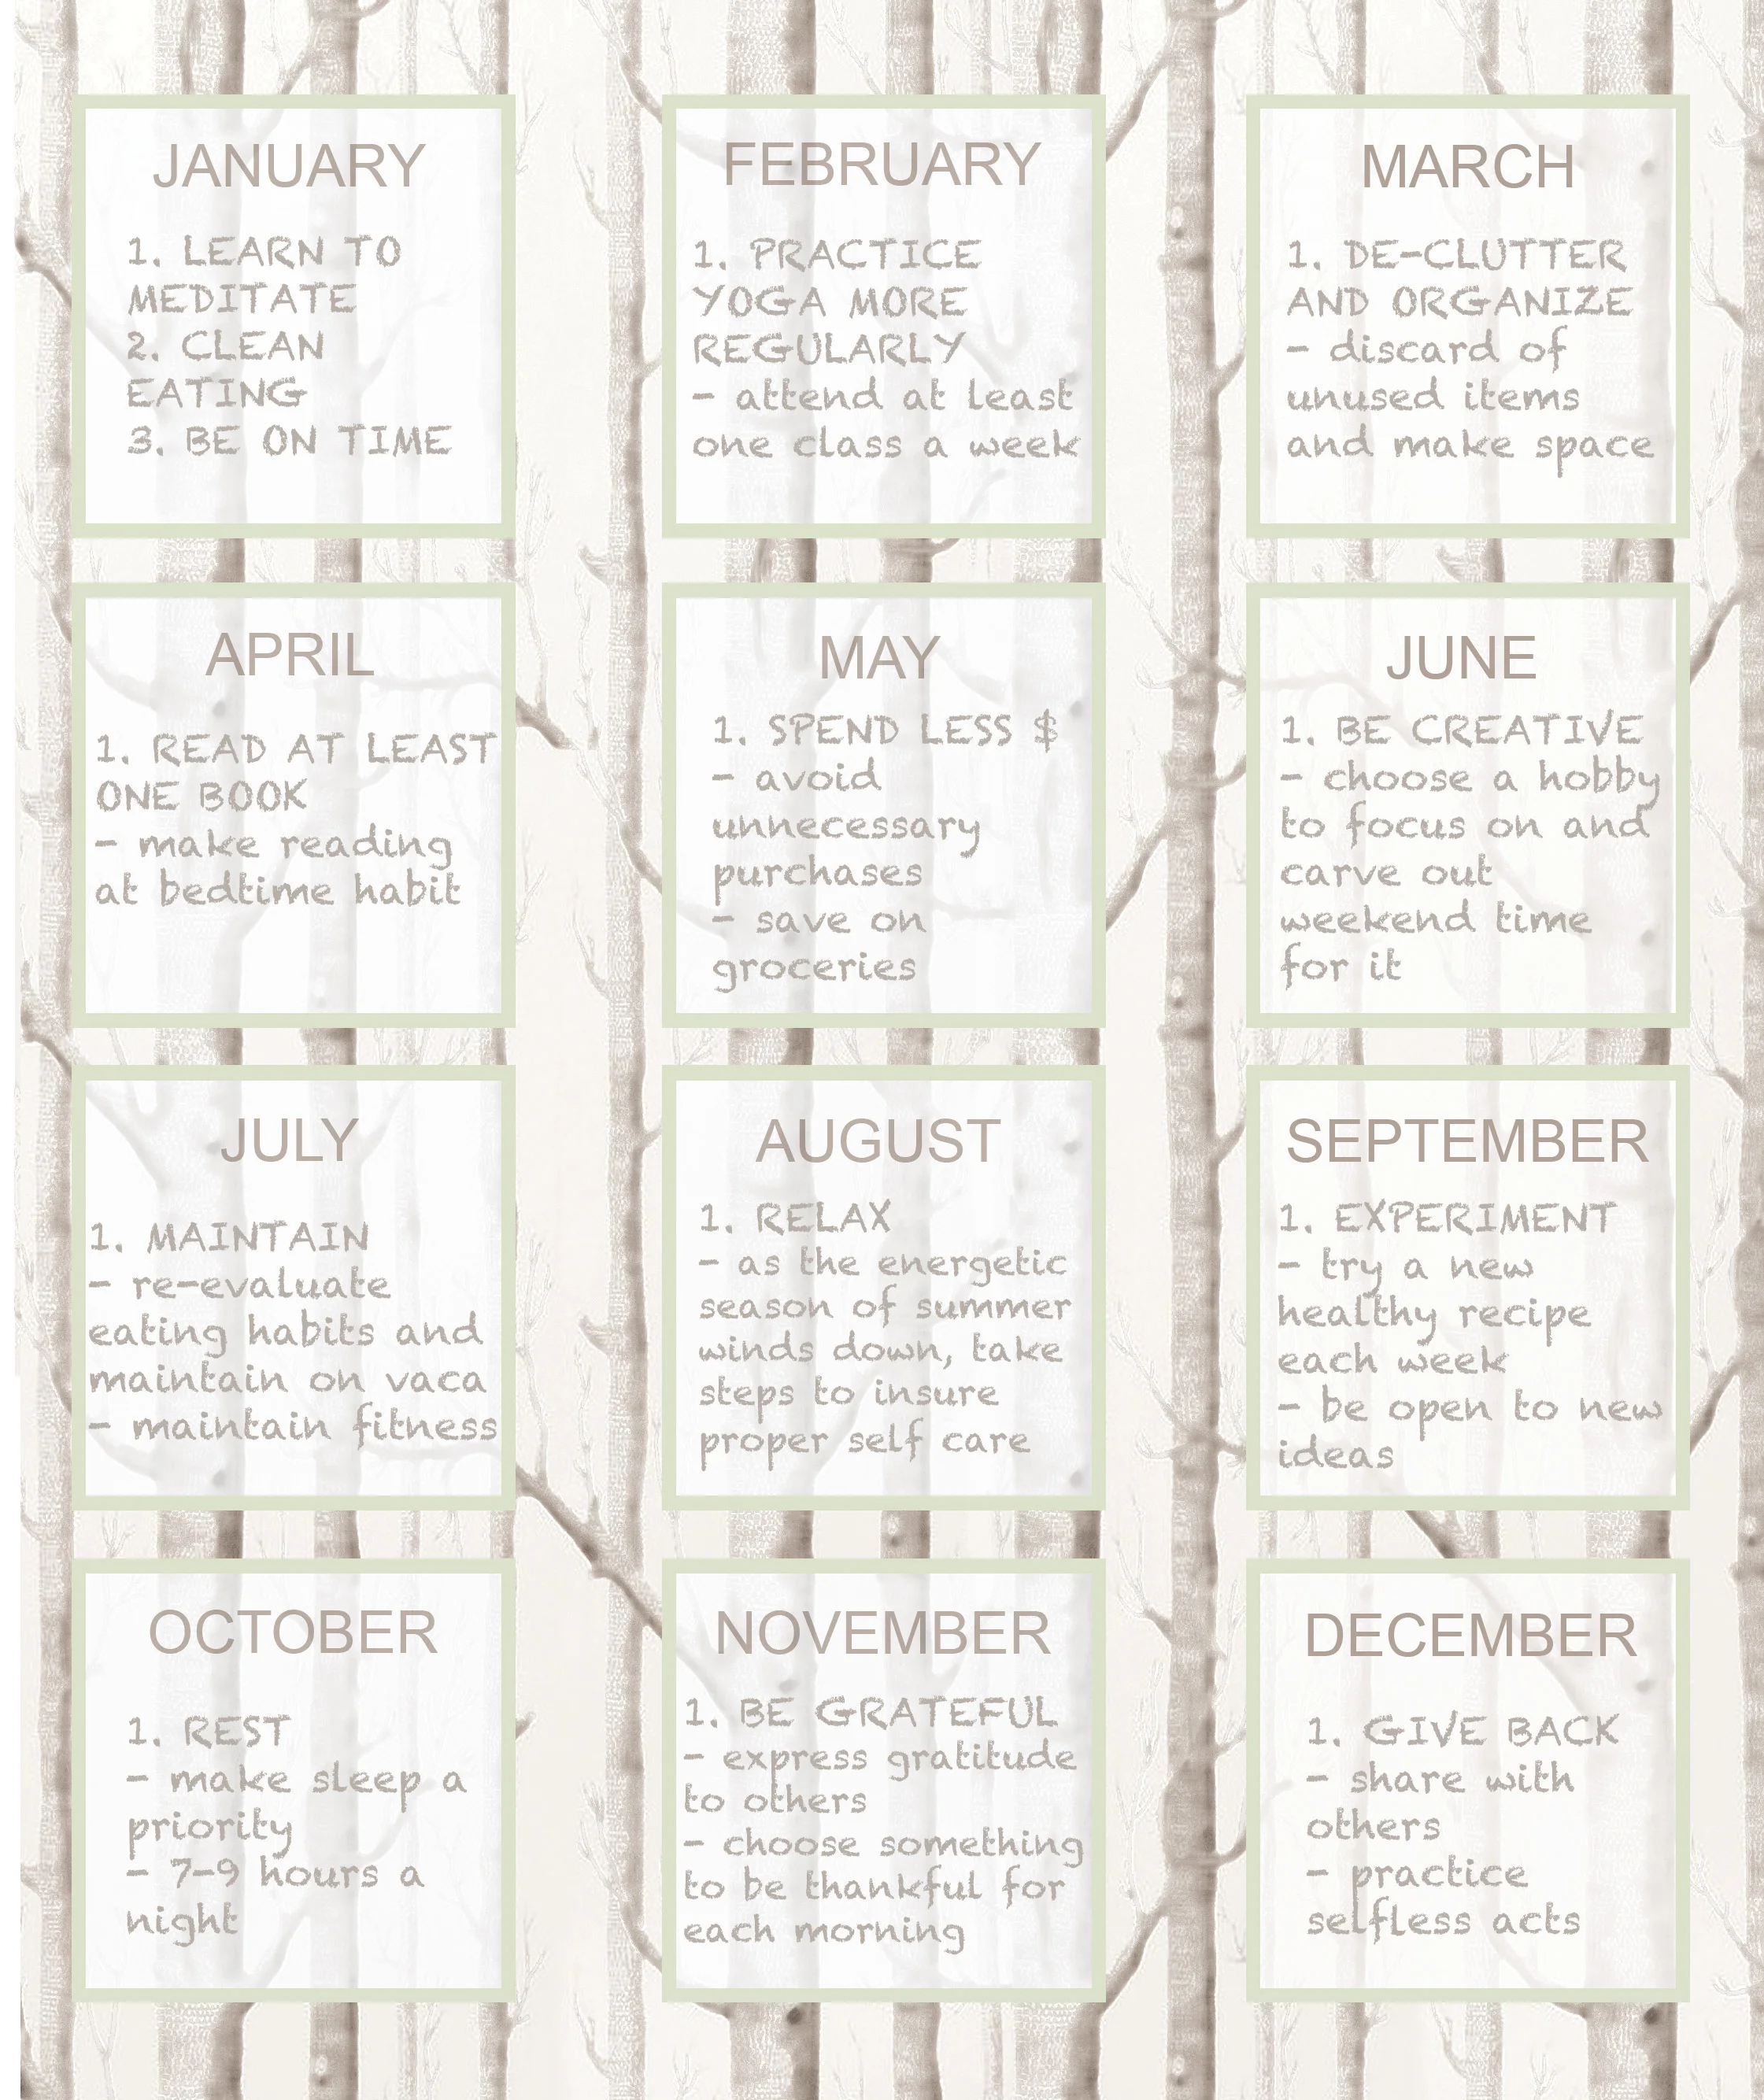 JANUARY
1. LEARN TO
MEDITATE
2. CLEAN
EATING
3. BE ON TIME
FEBRUARY
1. PRACTICE
YOGA MORE
REGULARLY
- attend at least
one class a week
MARCH
1. DE-CLUTTER
AND ORGANIZE
- discard of
unused items
and make space
APRIL
1. READ AT LEAST
ONE BOOK
- make reading
at bedtime habit
MAY
1. SPEND LESS $
- avoid
unnecessary
purchases
- save on
groceries
JUNE
1. BE CREATIVE
- choose a hobby
to focus on and
carve out
weekend time
for it
JULY
1. MAINTAIN
- re-evaluate
eating habits and
maintain on vaca
- maintain fitness
AUGUST
1. RELAX
- as the energetic
season of summer
winds down, take
steps to insure
proper self care
SEPTEMBER
1. EXPERIMENT
- try a new
healthy recipe
each week
- be open to new
ideas
OCTOBER
1. REST
- make sleep a
priority
- 7-9 hours a
night
NOVEMBER
1. BE GRATEFUL
- express gratitude
to others
- choose something
to be thankful for
each morning
DECEMBER
1. GIVE BACK
- share with
others
- practice
selfless acts